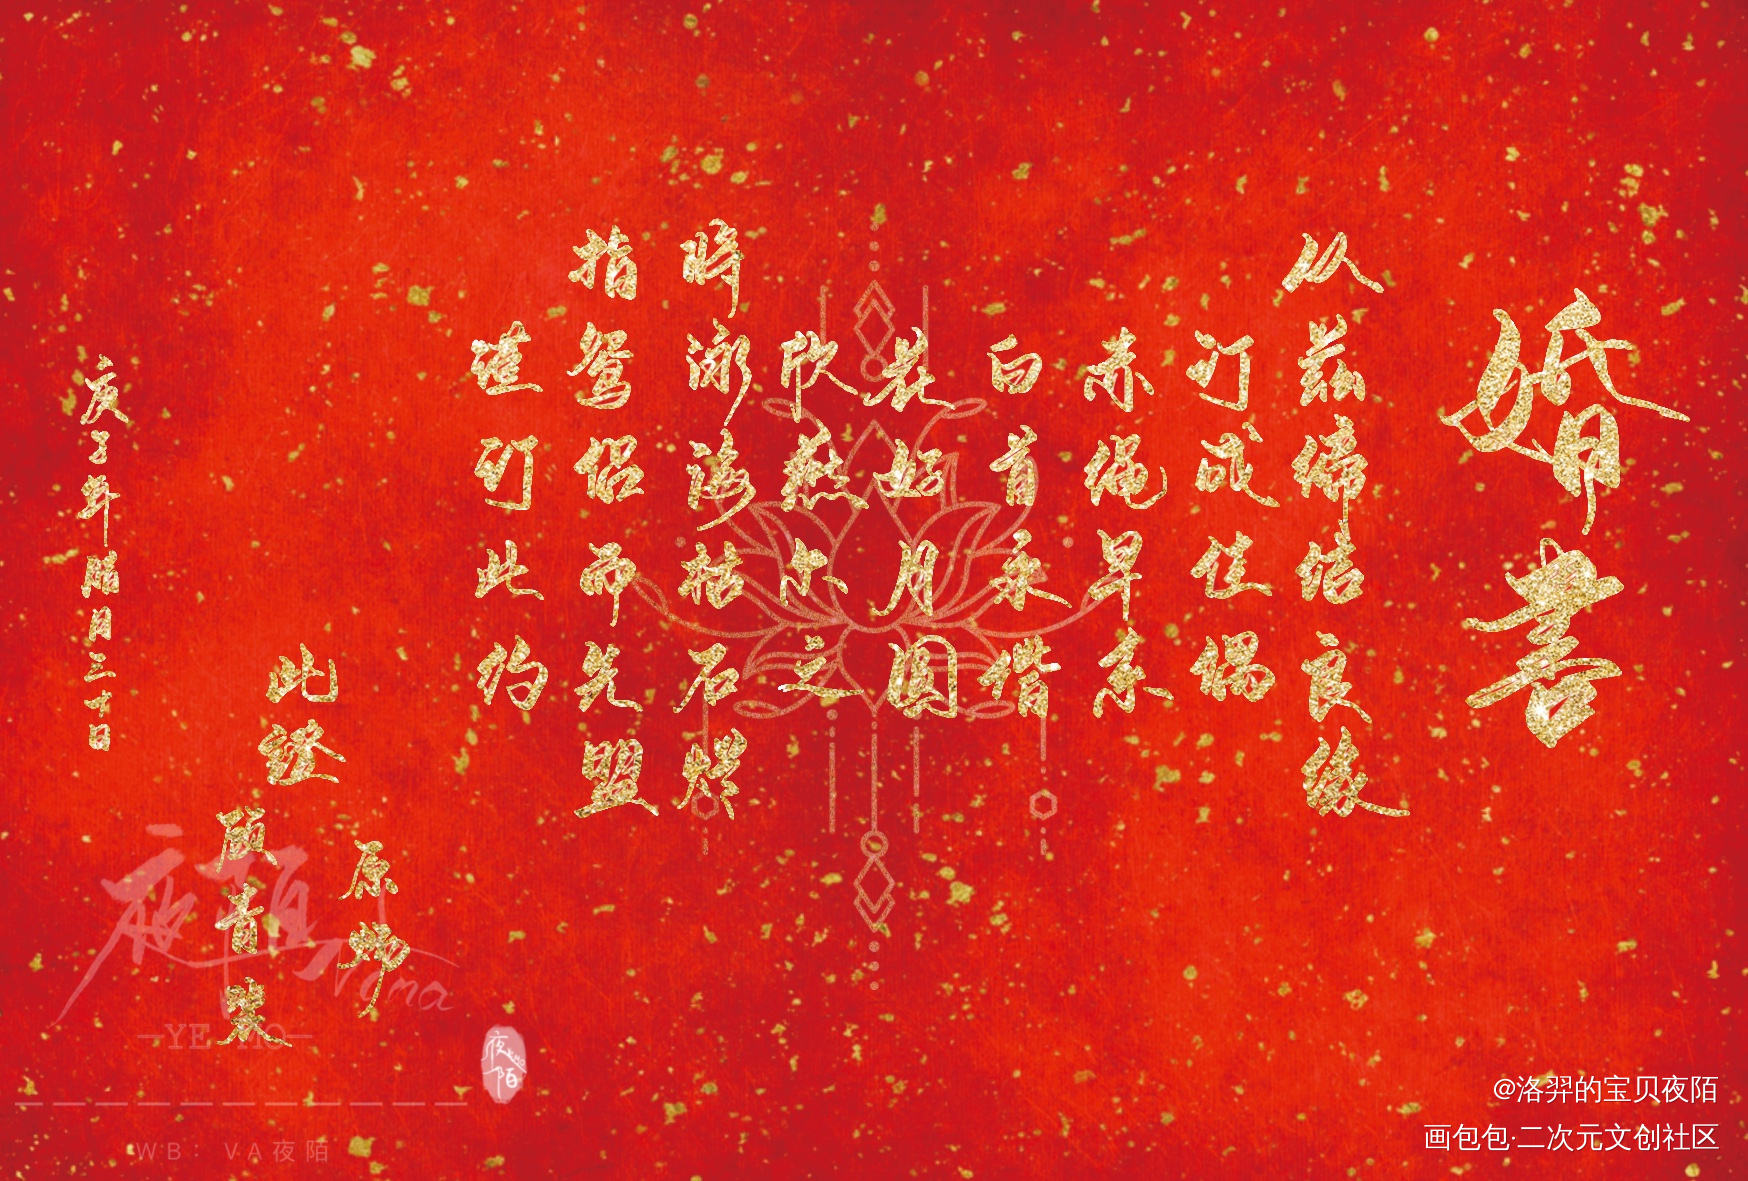 婚書
从茲締结良緣
订成佳偶
赤绳早系
白首永偕
花好月圆
欣燕尔之
将泳海枯石烂
指鸳侣而先盟
谨订此约
此證
原炜
顾青裴
庚子年腊月三十日
夜陌
Yama
YE MO
夜陌
WB：VA夜陌
@洛羿的宝贝夜陌
画包包·二次元文创社区